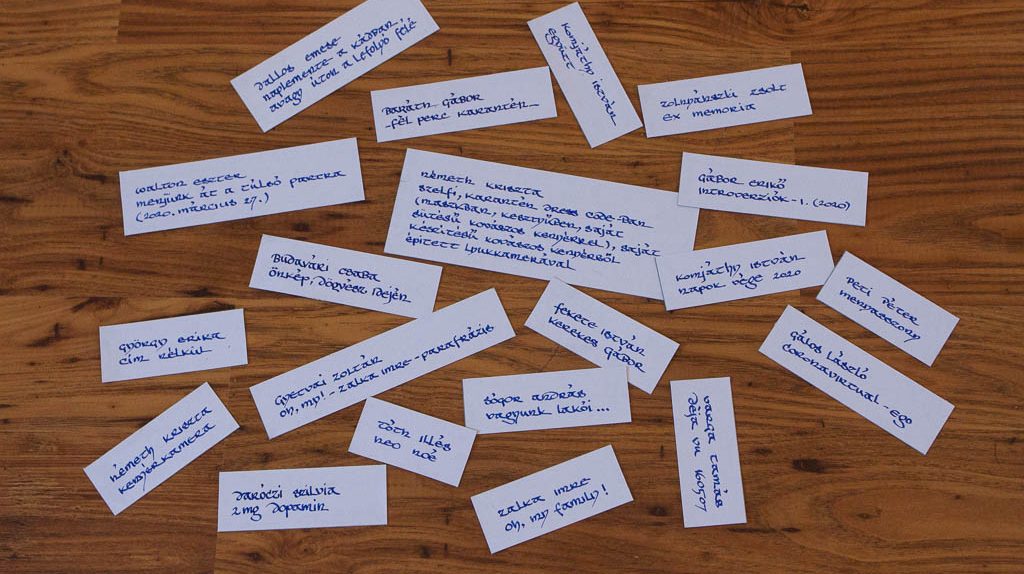 Dallos Emese
naplemente a kádban,
avagy úton a lefolyó felé
Baráth Gábor
-fél perc karantén-
Komjáthy István
együtt
Zolnpánszki Zsolt
ex memoria
Walton Eszter
menjünk át a túlsó partra
(2020. március 27.)
Németh Kriszta
szelfi, karantén dress code-ban
(maszkban, kesztyűben, saját
sütésű kovászos kenyérrel), saját
készítésű kovászos kenyérből
épített lyukkamerával
Gábor Enikő
introverziók - 1. (2020)
Budavári Csaba
önkép, dögvész idején
Komjáthy István
napok vége 2020
Peti Péter
menyasszony
György Erika
cím nélkül
Gyetvai Zoltán
oh, my! - Zalka Imre - parafrázis
Fekete István
Kerekes Gábor
Gálos László
coronavirtual - ego
Németh Kriszta
kenyérkamera
Tóth Illés
neo noé
Sógor András
vagyunk lakói ...
Varga Tamás
Déja vu 160507
Daróczi Szilvia
2 mg dopamin
Zalka Imre
oh, my family!